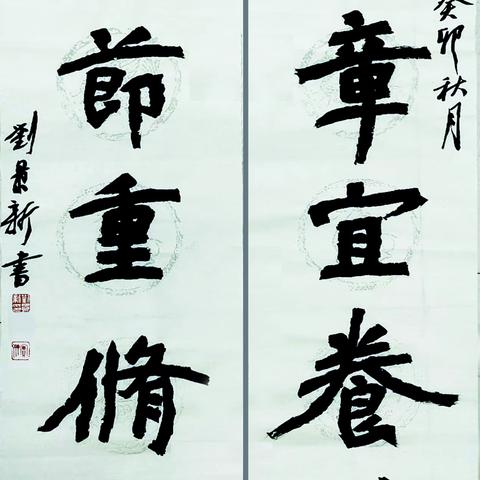 癸卯秋月
章宜養
莭重脩
劉景新書